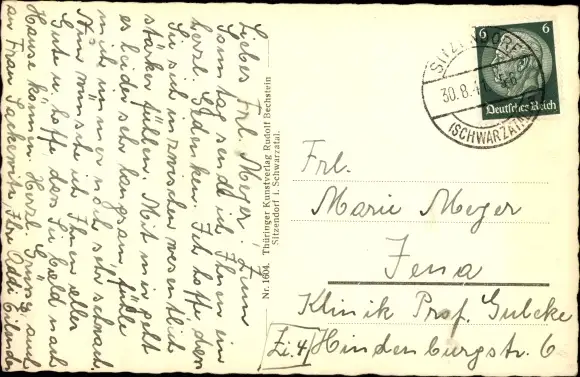 Liebes Frl. Meyer! Zum
Sonntag sende ich Ihnen ein
herzl. Gedenken. Ich hoffe, dass
Sie sich inzwischen wesentlich
stärker fühlen. Mit mir geht
es leider sehr langsam, fühle
mich immer noch sehr schwach.
Nun wünsche ich Ihnen alles
Gute u. hoffe, dass Sie bald nach
Hause können. Herzl. Grüsse auch
an Frau Ihr
Nr. 1604. Thüringer Kunstverlag Rudolf Bechstein
Sitzendorf i. Schwarzatal.
6 6
Deutsches Reich
SITZENDORF
30.8.4
(SCHWARZATAL)
Frl.
Marie Meyer
Jena
Klinik Prof. Gulcke
Zi. 4 Hindenburgstr. 6